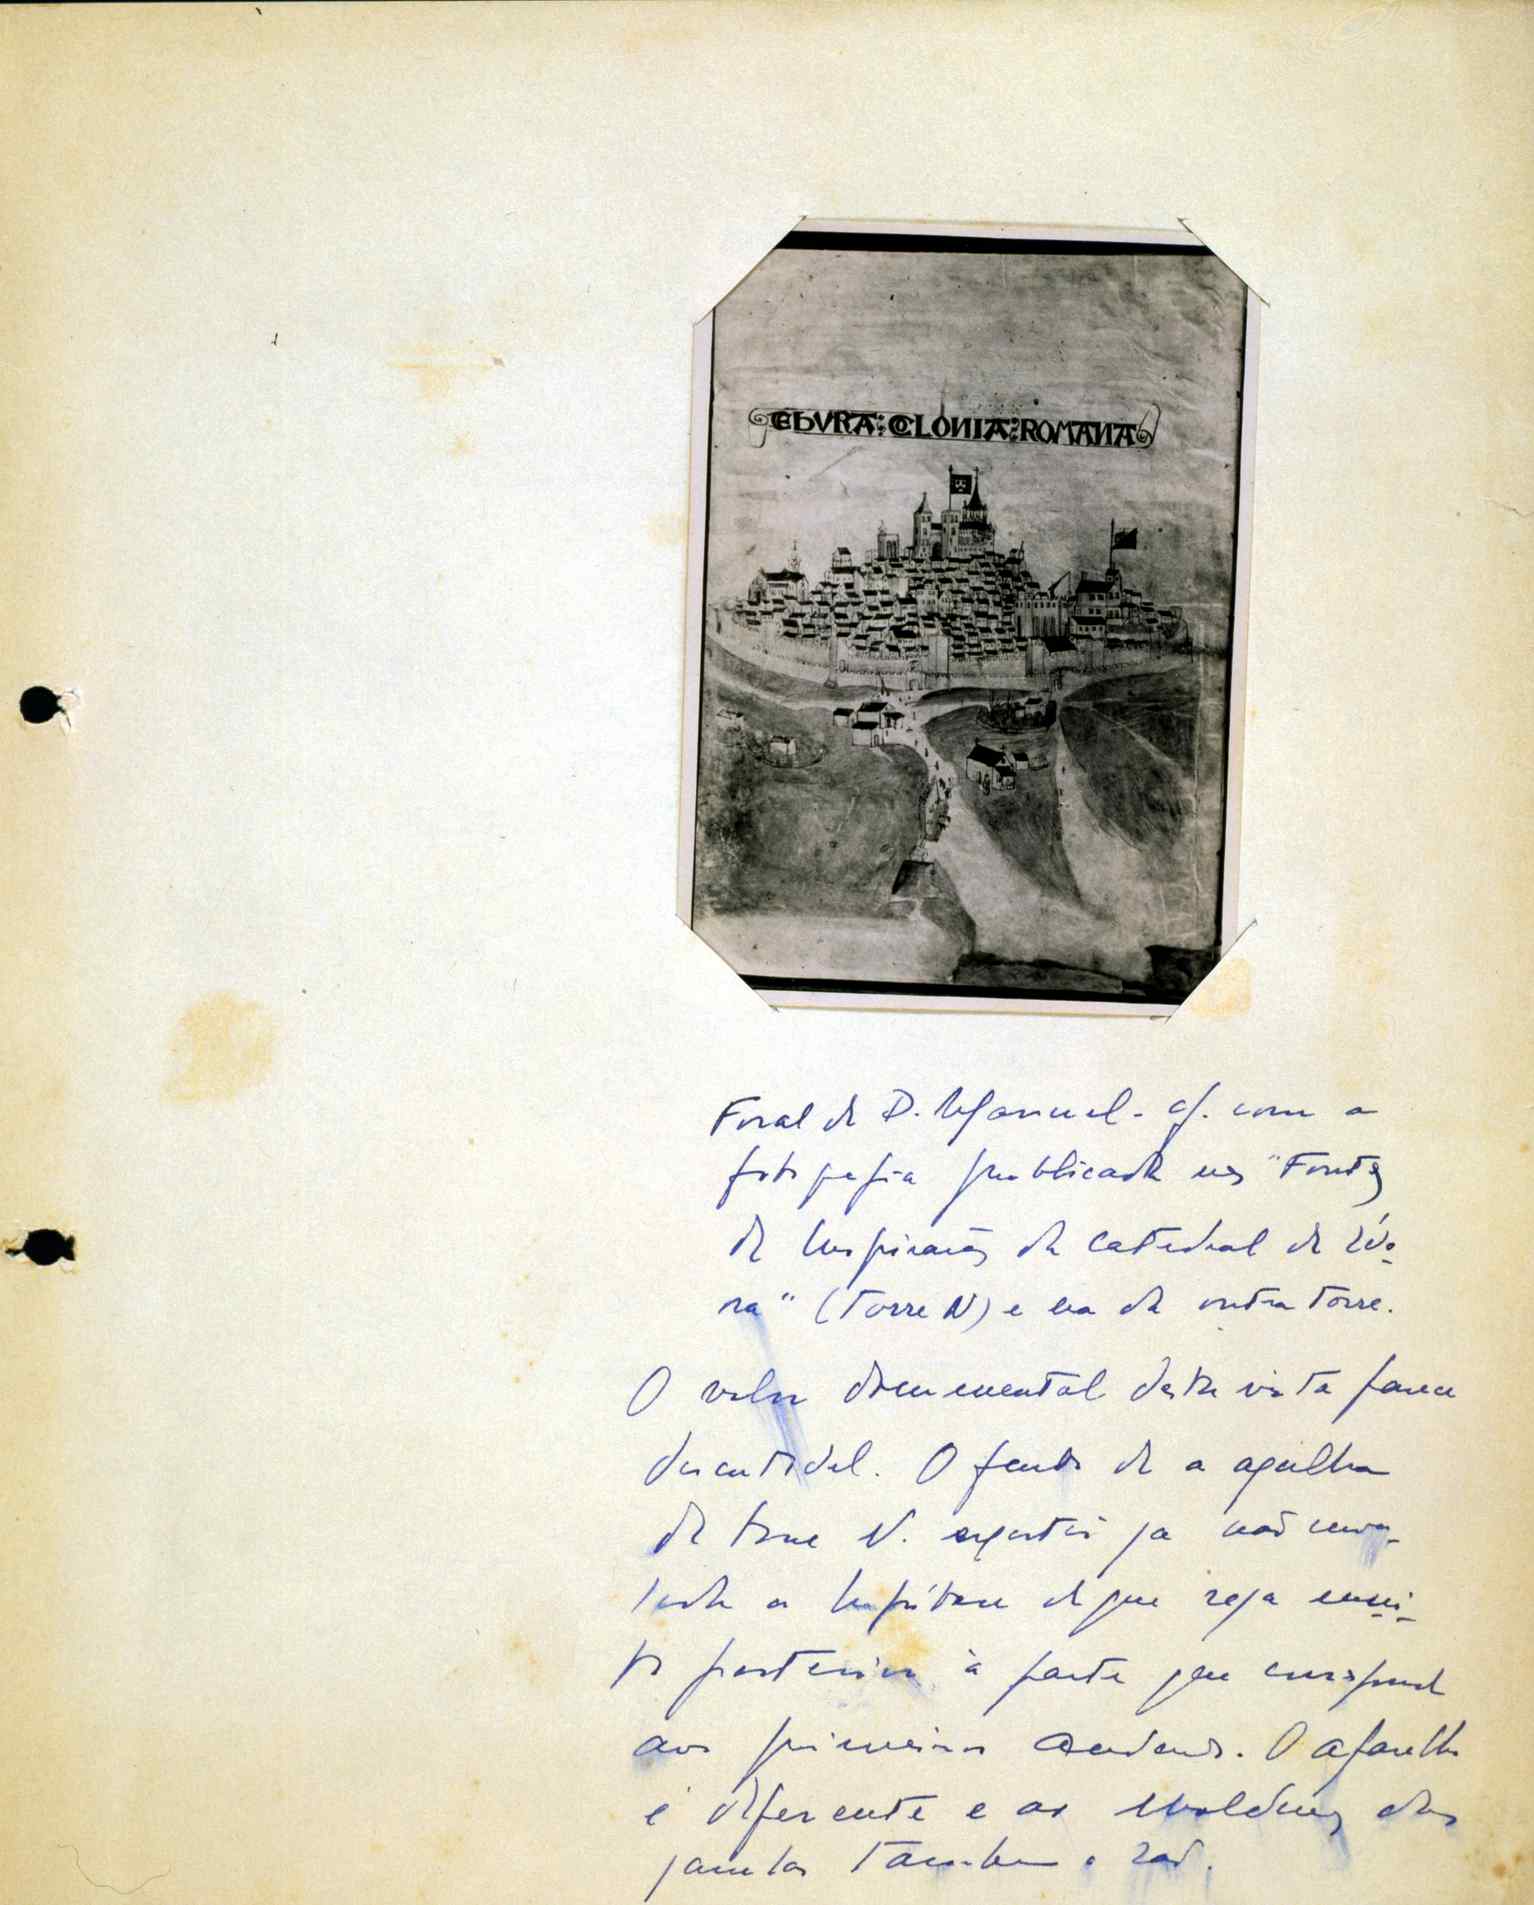 EBVRA : COLONIA : ROMANA
Foral de D. Manuel - cf. com a
fotografia publicada nas "Fontes
de Inspiração da Catedral de Évo-
ra" (Torre N) e na da outra torre.
O valor documental desta vista parece
discutivel. O facto de a agulha
da torre N. existir já não inva-
lida a hipótese de que seja mui-
to posterior à parte que corresponde
aos primeiros andares. O aparelho
é diferente e as molduras das
janelas também o são.